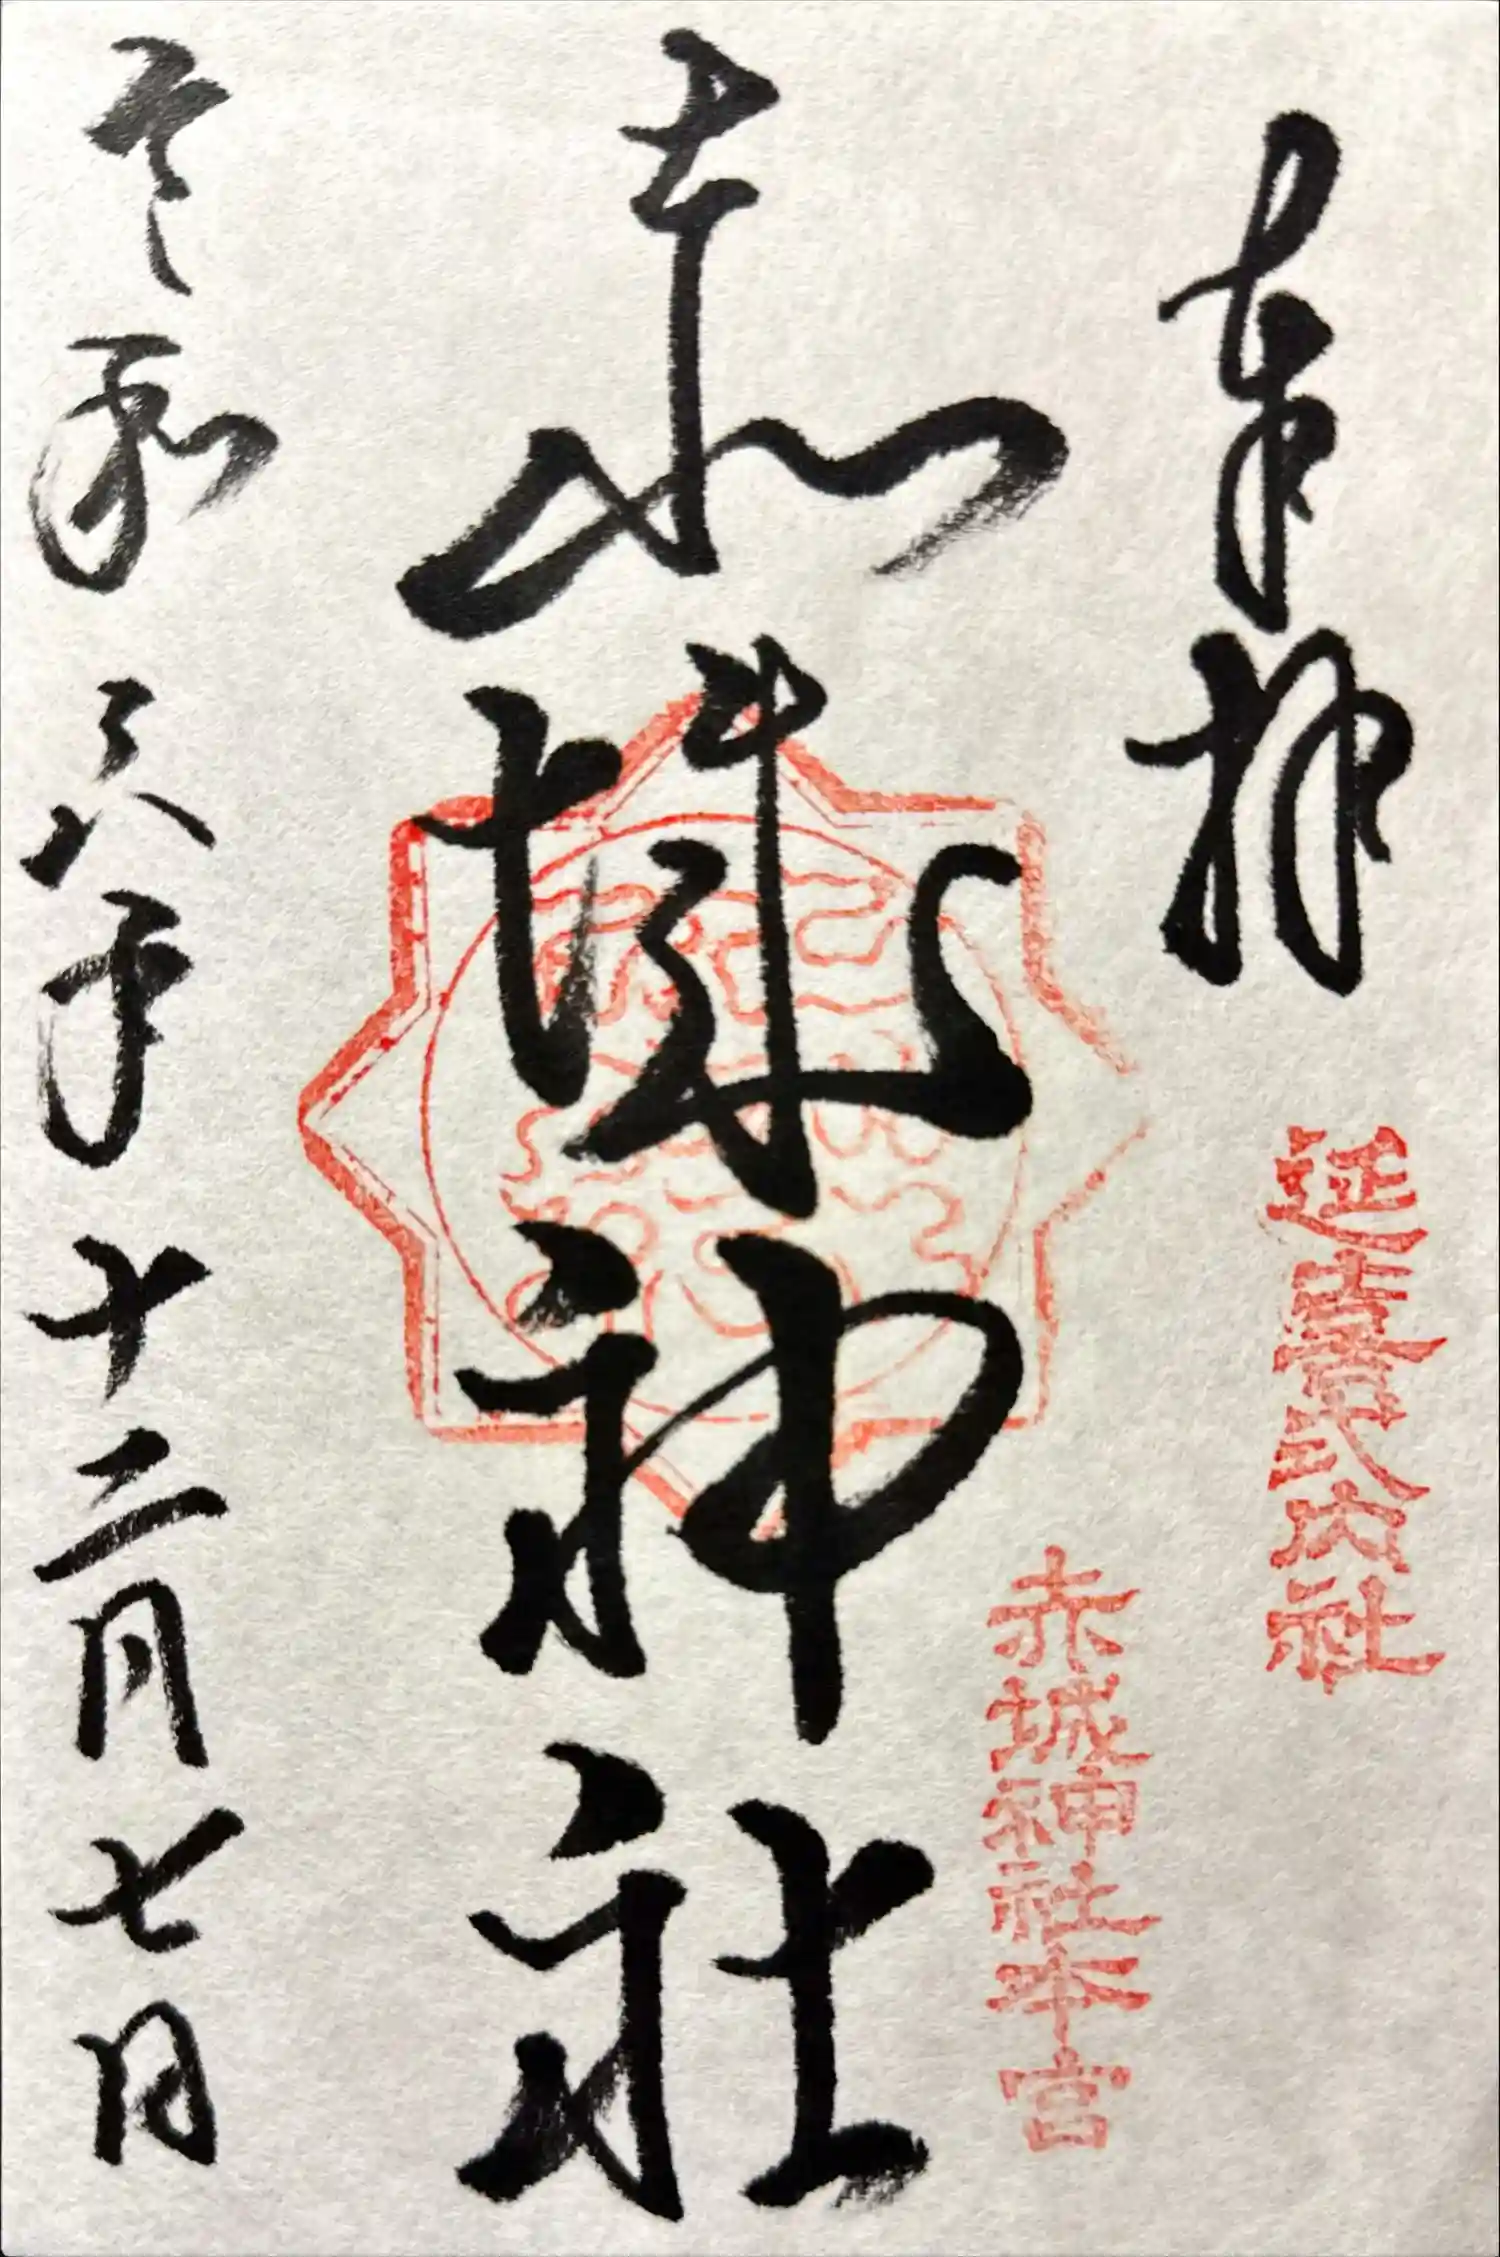 奉拝
延喜式内社
赤城神社本宮
赤城神社
令和六年十二月七日